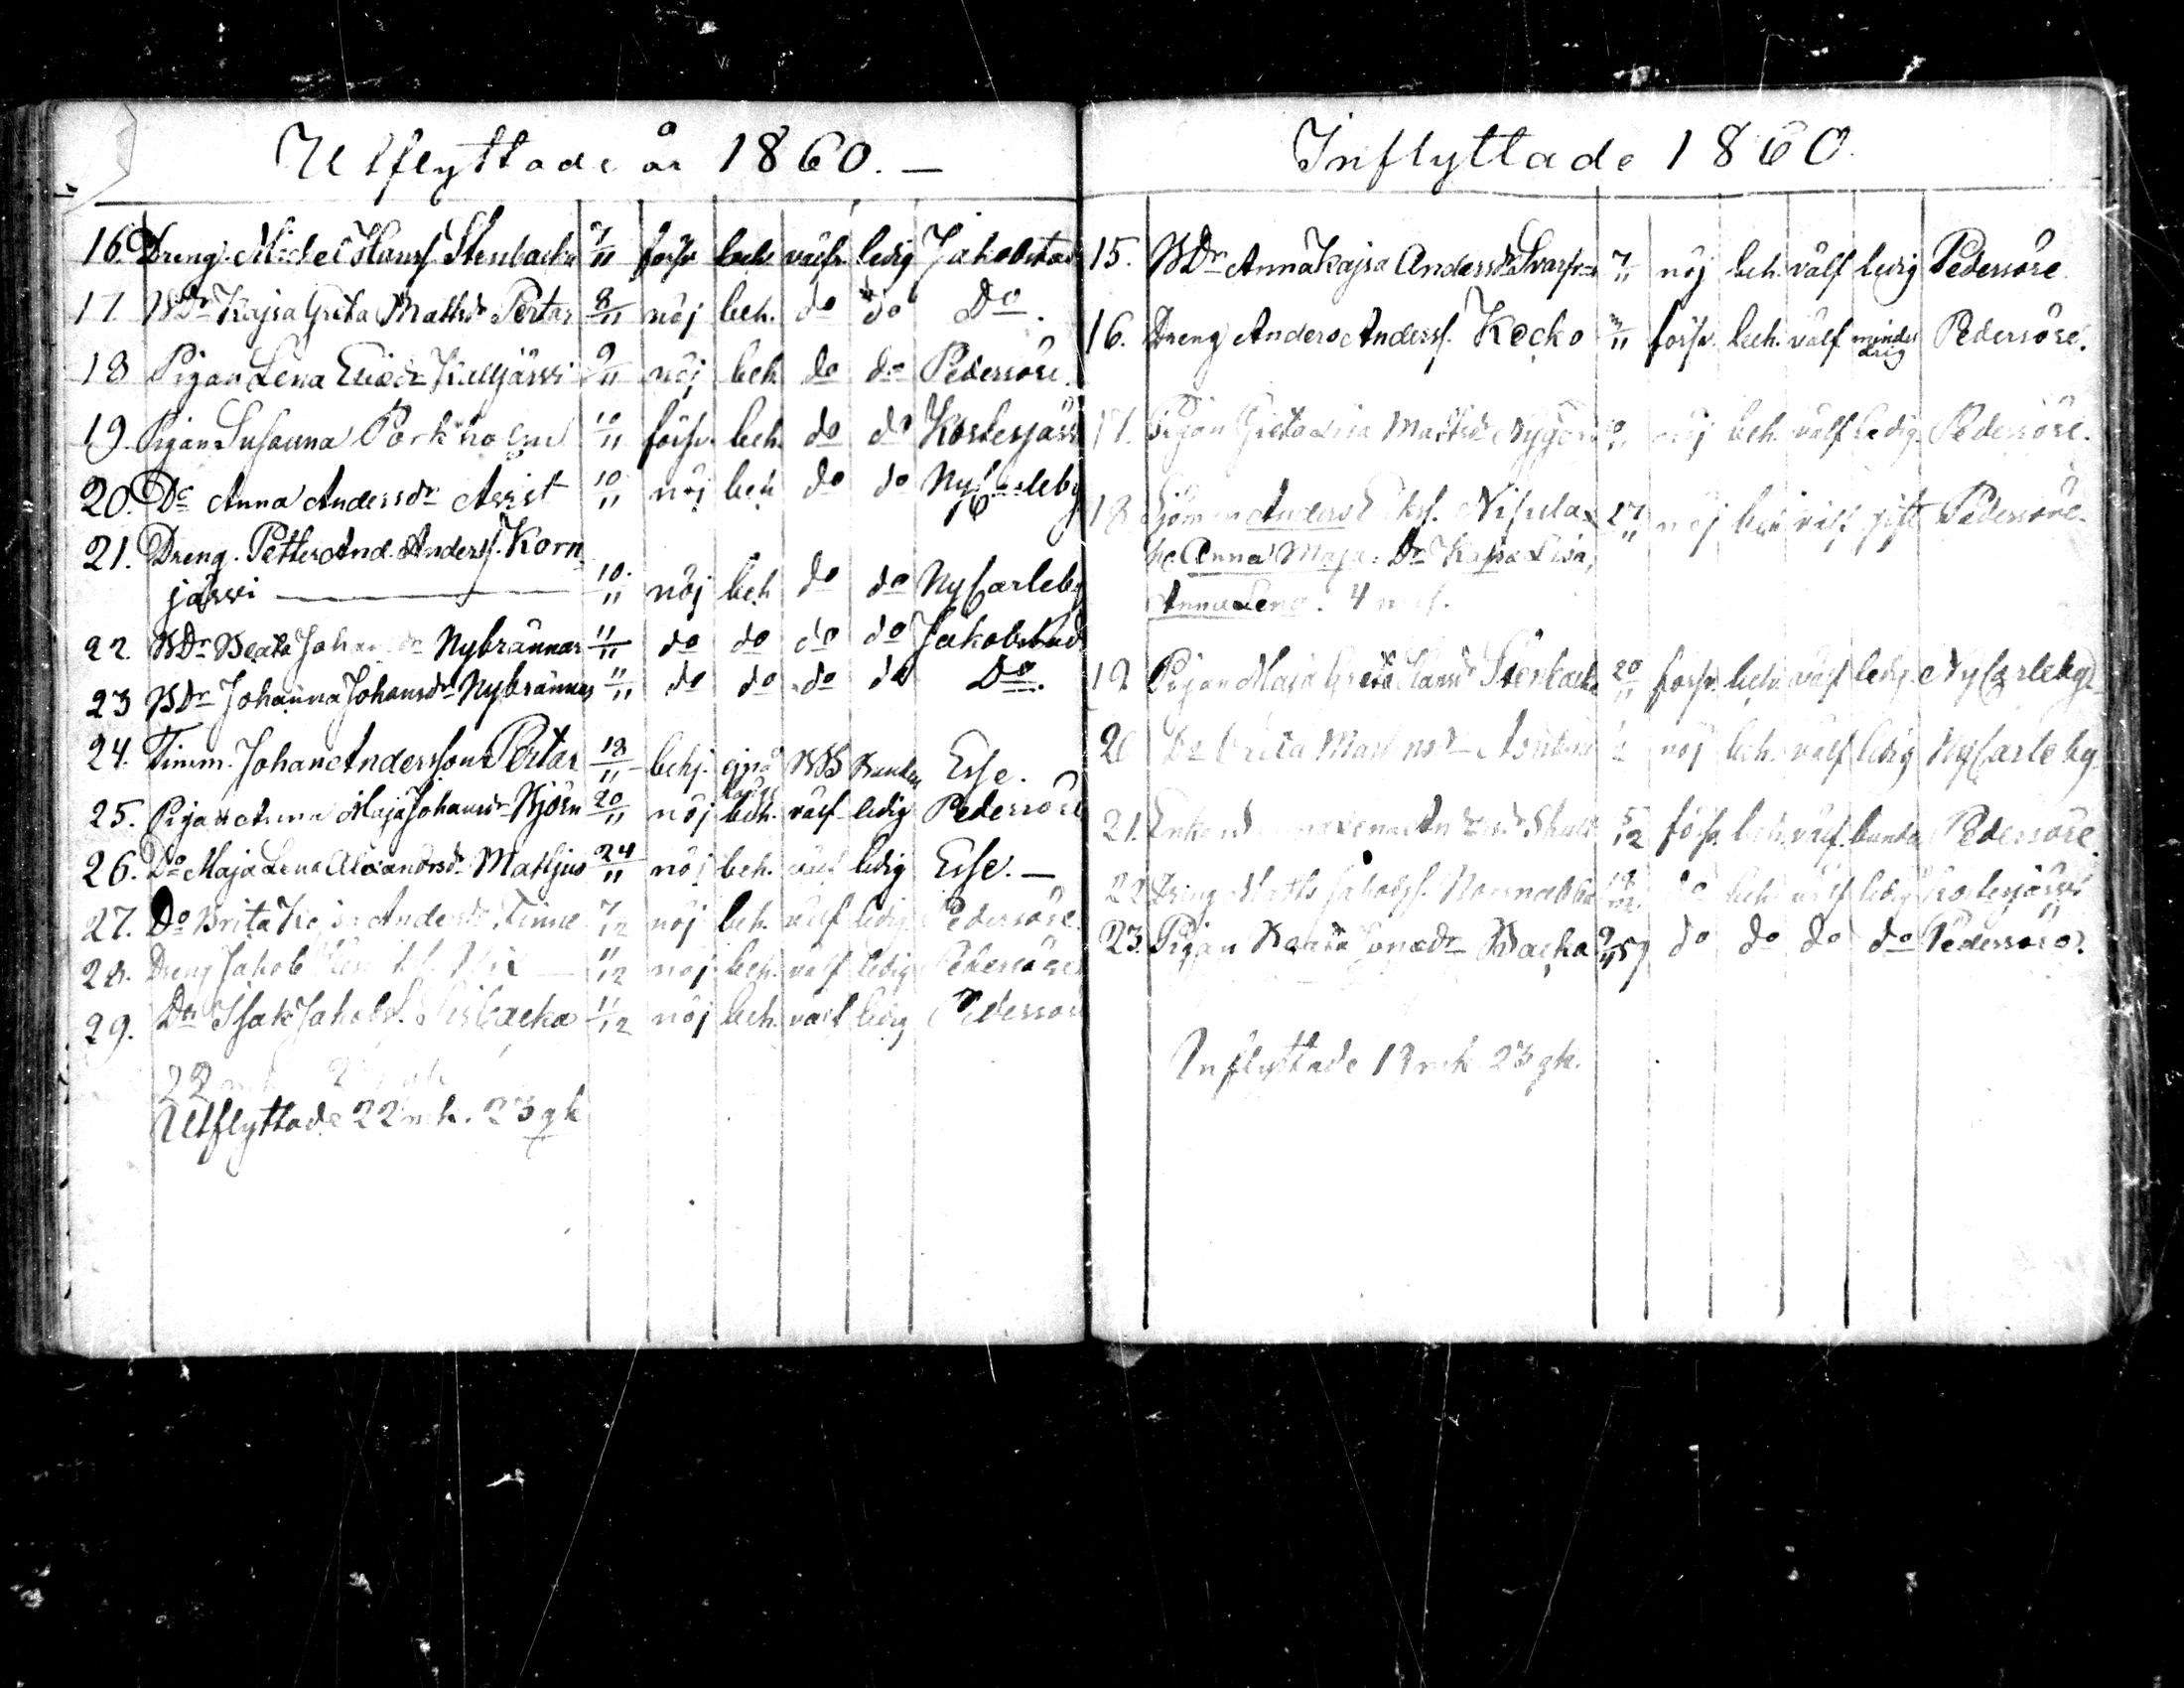 Utflyttade år 1860. —
16. Dreng. Mickel Hanss. Stenbacka 7/11 försv. beh. välfr. ledig Jakobstad
17 BDr Kajsa Greta Mattsdr Pertar 8/11 nöj beh. do do Do.
18 Pigan Lena Ericdr Kulljärvi 9/11 nöj beh. do do Pedersöre.
19. Pigan Susanna Porkholm 10/11 försv. beh. do do Kortesjärvi
20. Do Anna Andersdr Asist 10/11 nöj beh do do NyCarleby
21. Dreng. Petter And. Anderss. Korn
järvi — 10/11 nöj beh do do NyCarleby
22. BDr Beata Johansdr Nybrännar 11/11 do do do do Jakobstad
23 BDr Johanna Johansdr Nybrännar 11/11 do do do do Do.
24. Timm. Johan Andersson Pertar 18/11 behj. BB Esse.
25. Pigan Anna Maja Johansdr Björn 20/11 nöj beh. välf ledig Pedersöre
26. Do Maja Lena Alexandersdr Matljus 24/11 nöj beh. välf ledig Esse. —
27. Do Brita Kajsa Andersdr Finne 7/12 nöj beh. välf ledig Pedersöre
28. Dreng Jakob 11/12 nöj beh. välf ledig Pedersöre
29. Dr Isak Jakobss. 11/12 nöj beh. välf ledig Pedersöre
22
Utflyttade 22 mk. 23 qk
Inflyttade 1860.
15. BDr Anna Kajsa Andersdr 7/11 nöj beh. välf ledig Pedersöre.
16. Dreng Anders Anderss. Kecko försv. beh. välf minder årig Pedersöre.
17. Pigan Greta Lisa Mattsdr Nygård nöj beh. välf ledig Pedersöre.
18 Anders Nisula 27/11 nöj beh välf gift Pedersöre.
h. Anna Maja. Dr Kajsa Lisa,
Anna Lena. 4
19 Pigan Maja Greta Hansdr Stenbacka 20/11 försv. beh. välf ledig. NyCarleby.
20 Do Brita nöj beh. välf ledig NyCarleby.
21. Enkan 5/12 försv. beh. välf. Pedersöre.
22. Dreng Matts Jakobss. do beh. välf ledig Kortesjärvi
23. Pigan Jonædr Backa do do do do Pedersöre.
Inflyttade 13 mk 23 qk.